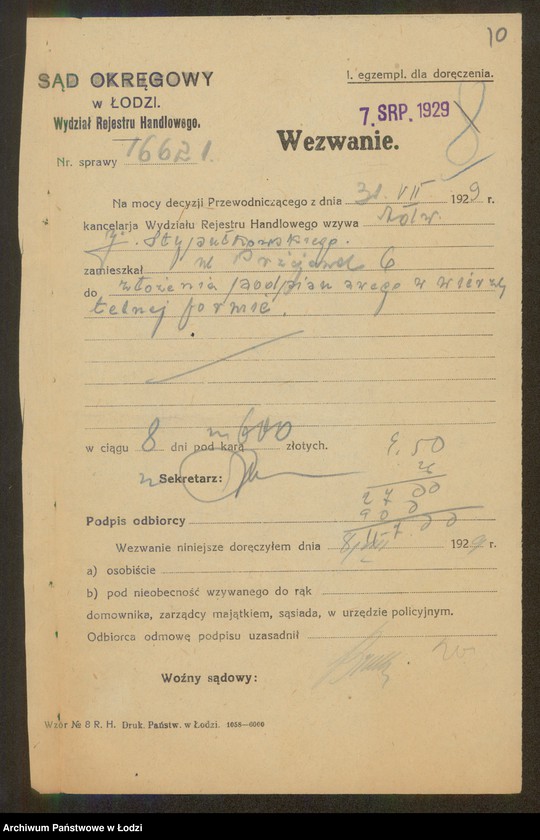 10
SĄD OKRĘGOWY
w ŁODZI.
Wydział Rejestru Handlowego.
I. egzempl. dla doręczenia.
7. SRP. 1929
8
Wezwanie.
Nr. sprawy 16621
Na mocy decyzji Przewodniczącego z dnia 31. VII 1929 r.
kancelarja Wydziału Rejestru Handlowego wzywa
J. Stypułkowskiego.
zamieszkał 6
do złożenia podpisu w wierzy
telnej formie.
w ciągu 8 dni pod karą 600 złotych.
Sekretarz:
9.50
26
27 00
90 0
117 00
Podpis odbiorcy
Wezwanie niniejsze doręczyłem dnia 8/VIII 1929 r.
a) osobiście
b) pod nieobecność wzywanego do rąk
domownika, zarządcy majątkiem, sąsiada, w urzędzie policyjnym.
Odbiorca odmowę podpisu uzasadnił
Woźny sądowy:
Wzór № 8 R. H. Druk. Państw. w Łodzi. 1658—6000
Archiwum Państwowe w Łodzi